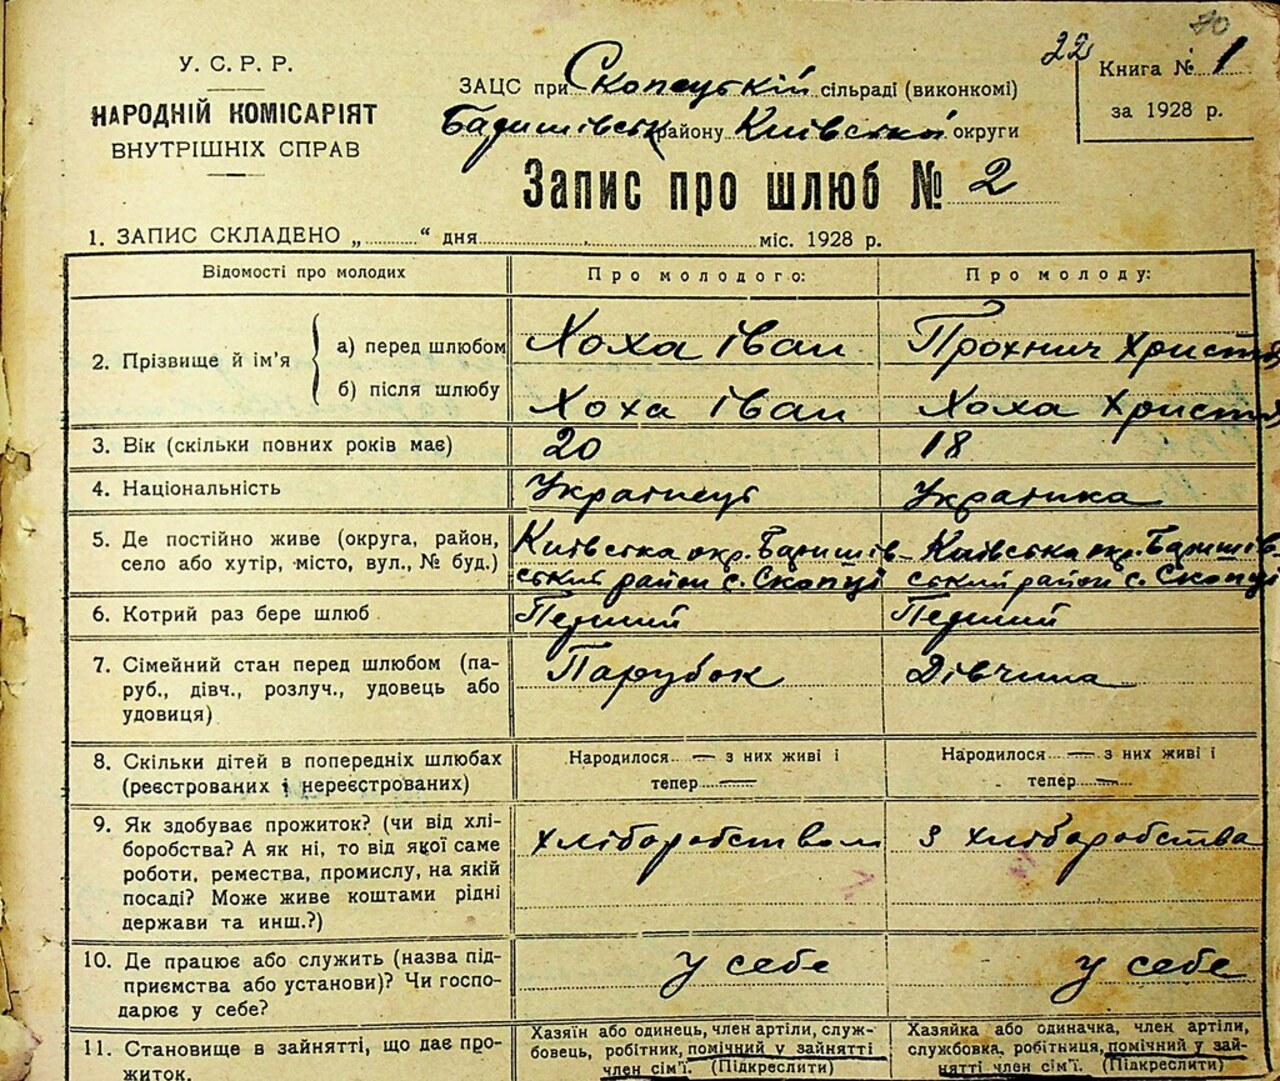 У. С. Р. Р.
НАРОДНІЙ КОМІСАРІЯТ
ВНУТРІШНІХ СПРАВ
ЗАЦС при Скопецькій сільраді (виконкомі)
Баришівськ району Київської округи
22
Книга № 1
за 1928 р.
Запис про шлюб № 2
1. ЗАПИС СКЛАДЕНО „ “ дня міс. 1928 р.
Відомості про молодих Про молодого: Про молоду:
2. Прізвище й ім'я
а) перед шлюбом Хоха іван Прохнич Христя
б) після шлюбу Хоха іван Хоха Христя
3. Вік (скільки повних років має) 20 18
4. Національність Українець Українка
5. Де постійно живе (округа, район, Київська окр. Баришів- Київська окр. Баришів-
село або хутір, місто, вул., № буд.) ський район с. Скопці ський район с. Скопці
6. Котрий раз бере шлюб Перший Перший
7. Сімейний стан перед шлюбом (па- Парубок Дівчина
руб., дівч., розлуч., удовець або
удовиця)
8. Скільки дітей в попередніх шлюбах Народилося — з них живі і Народилося — з них живі і
(реєстрованих і нереєстрованих) тепер — тепер —
9. Як здобуває прожиток? (чи від хлі- хліборобством З хліборобства
боробства? А як ні, то від якої саме
роботи, ремества, промислу, на якій
посаді? Може живе коштами рідні
держави та инш.?)
10. Де працює або служить (назва під- у себе у себе
приємства або установи)? Чи госпо-
дарює у себе?
11. Становище в зайнятті, що дає про-
житок.
Хазяїн або одинець, член артіли, служ-
бовець, робітник, помічний у зайнятті
член сім'ї. (Підкреслити)
Хазяйка або одиначка, член артіли,
службовка, робітниця, помічний у зай-
нятті член сім'ї. (Підкреслити)